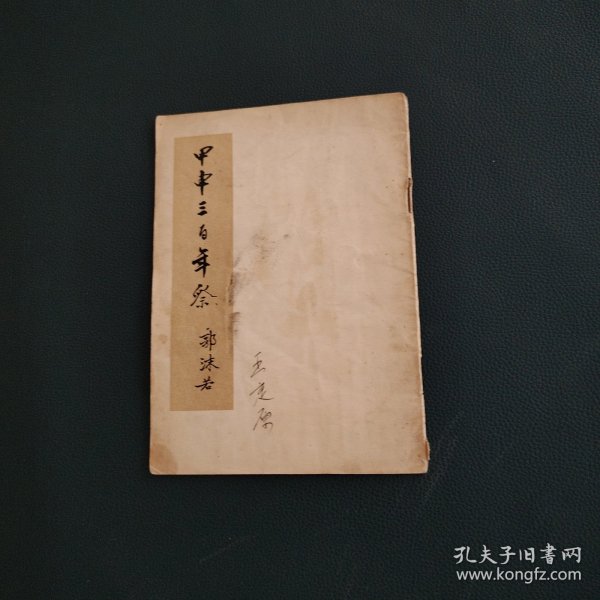 甲申三百年祭
郭沫若
孔夫子旧书网
www.kongfz.com